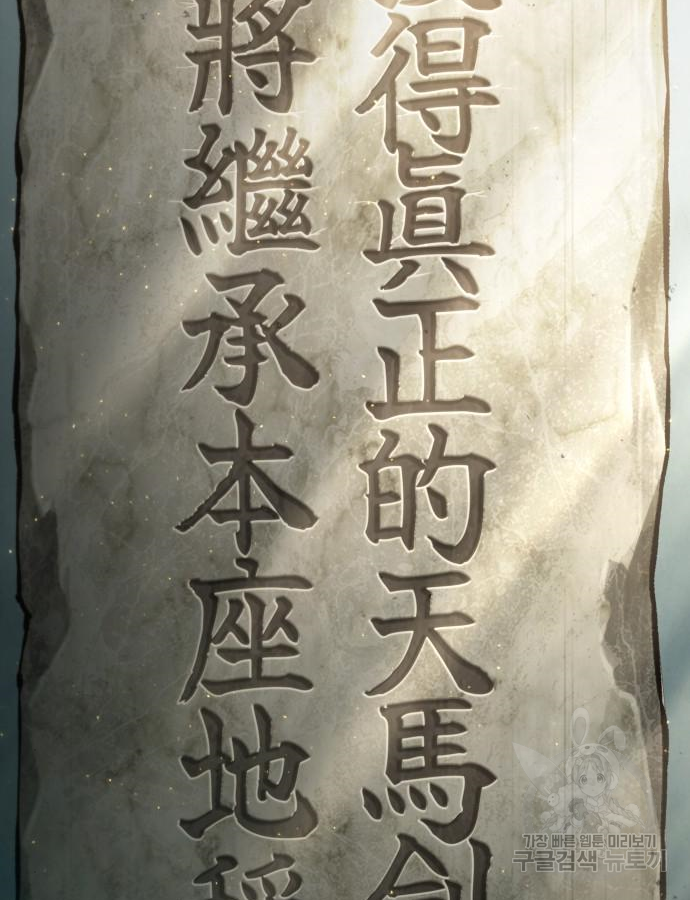 得眞正的天馬劍
將繼承本座地稱
가장 빠른 웹툰 미리보기
구글검색 뉴토끼